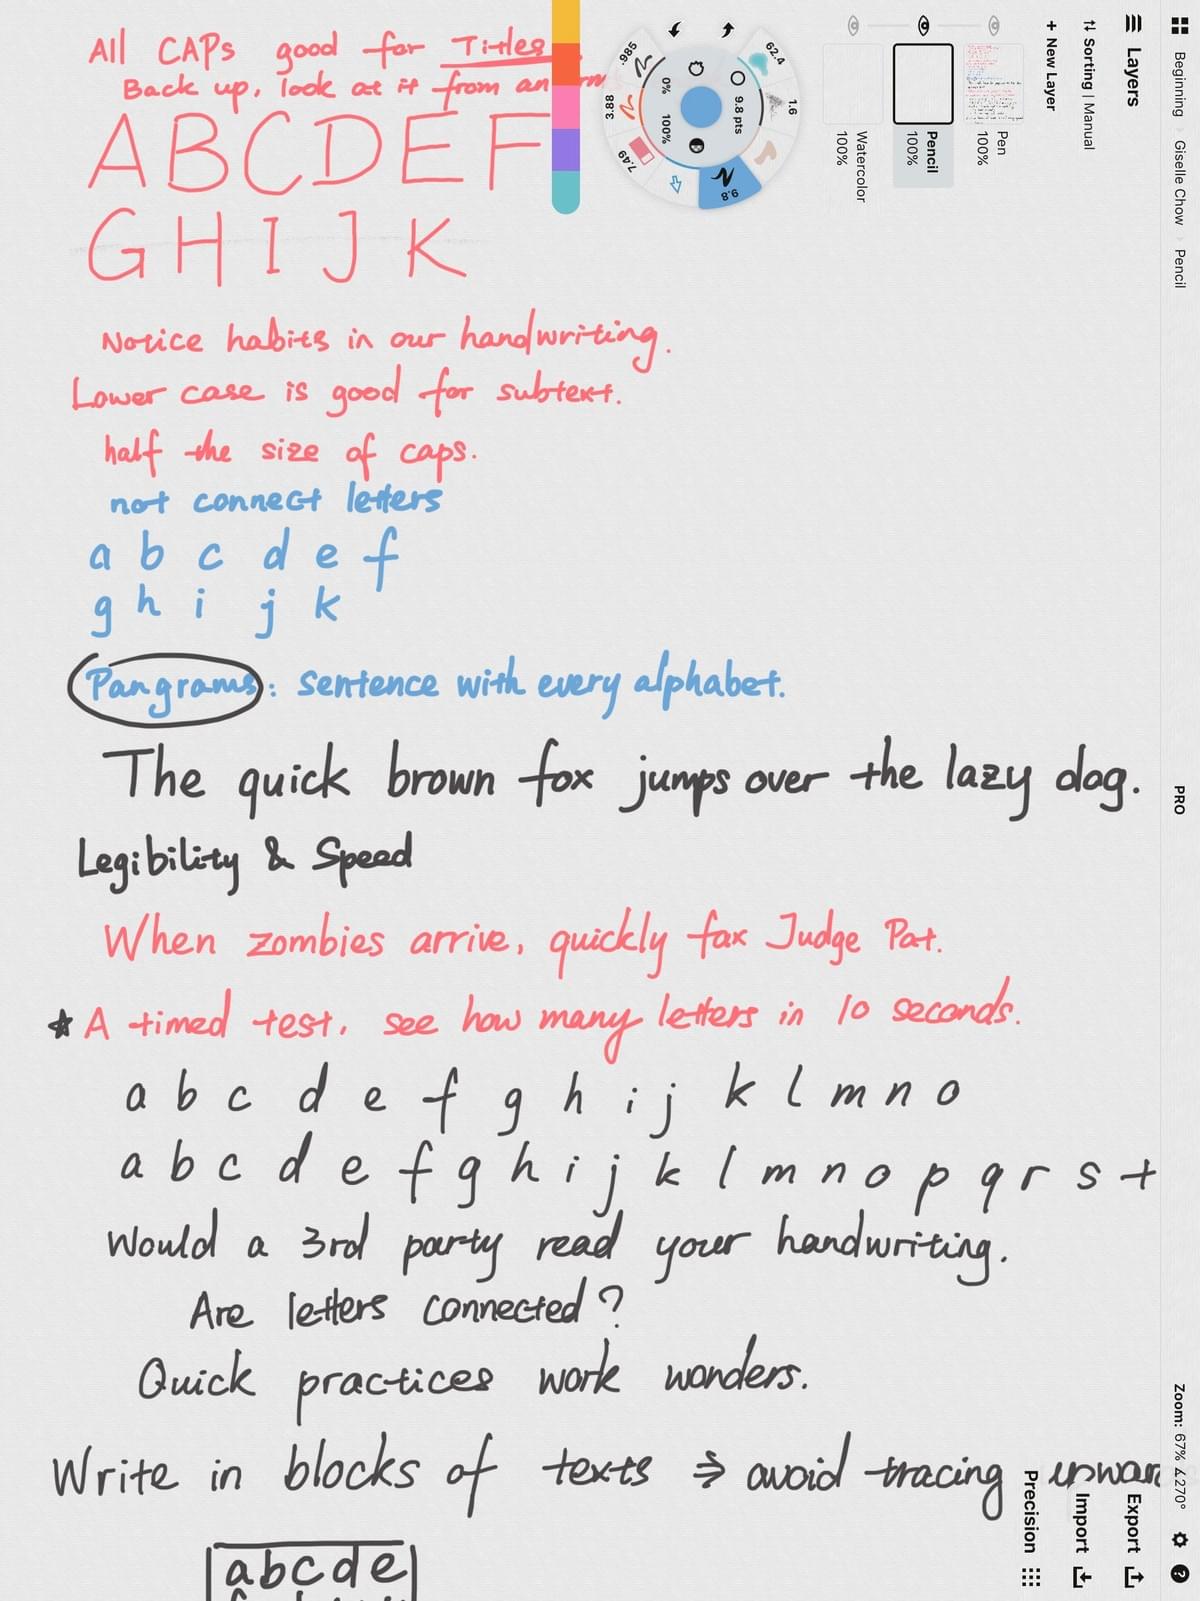 All CAPs good for Titles
Back up, look at it from an
ABCDEF
GHIJK
Notice habits in our handwriting.
Lower case is good for subtext.
half the size of caps.
not connect letters
a b c d e f
g h i j k
Pangrams: sentence with every alphabet.
The quick brown fox jumps over the lazy dog.
Legibility & Speed
When zombies arrive, quickly fax Judge Pat.
A timed test. see how many letters in 10 seconds.
a b c d e f g h i j k l m n o
a b c d e f g h i j k l m n o p q r s t
Would a 3rd party read your handwriting.
Are letters connected?
Quick practices work wonders.
Write in blocks of texts ⇒ avoid tracing upwar
abcde
Beginning Giselle Chow Pencil
PRO
Zoom: 67% ∡270°
Layers
Sorting | Manual
+ New Layer
Pen
100%
Pencil
100%
Watercolor
100%
62.4
1.6
9.8
7.49
3.88
.985
9.8 pts
0%
100%
Export
Import
Precision